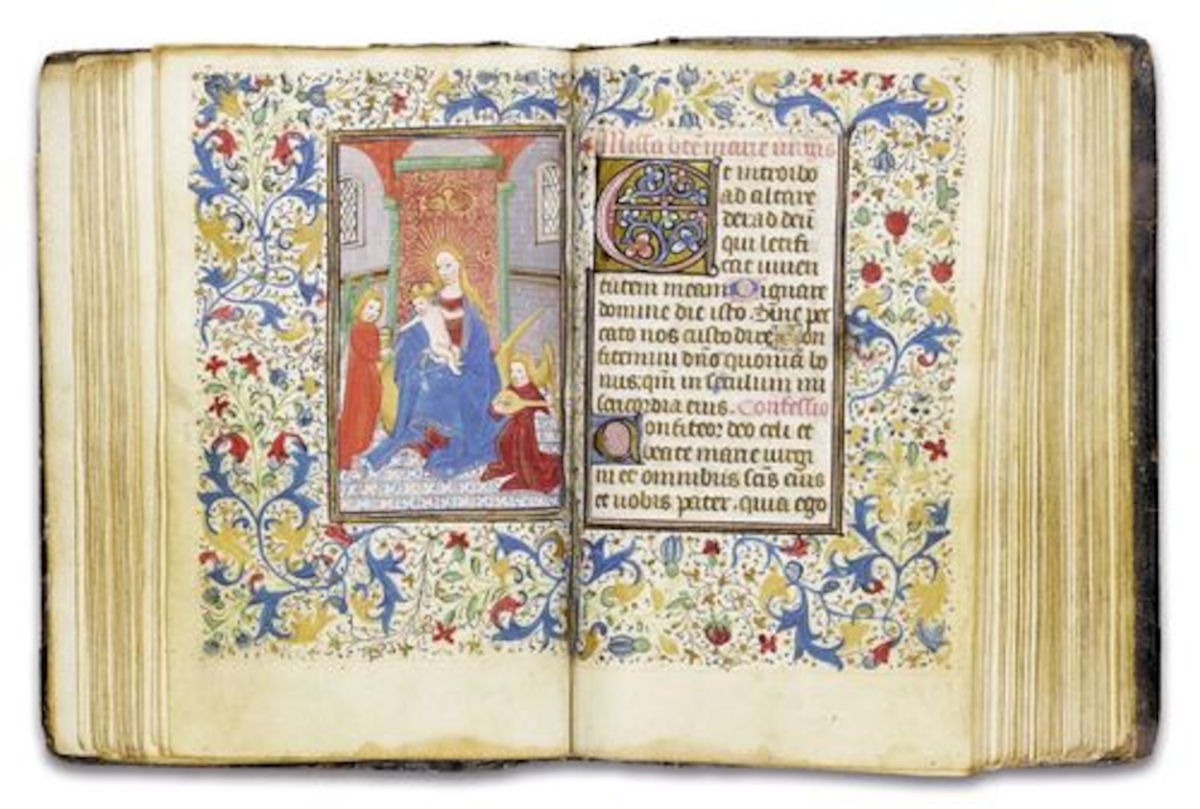 Missa bte marie uirgis
Et introibo
ad altare
dei ad deū
qui letifi
cat iuuen
tutem meam Dignare
domine die isto. Sine pec
cato nos custodire Con
fitemini dño quoniā bo
nus: qm̄ in seculum mi
sericordia eius. Confessio
Confiteor deo celi et
beate marie uirgi
ni et omnibus scīs eius
et uobis pater. quia ego